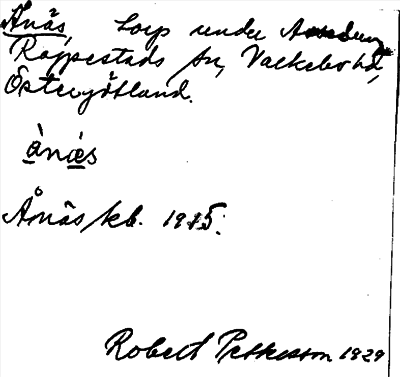 Ånäs, torp under
Rappestads sn, Valkebo hd,
Östergötland.
ànæs
Ånäs kb. 1915.
Robert Pettersson 1929